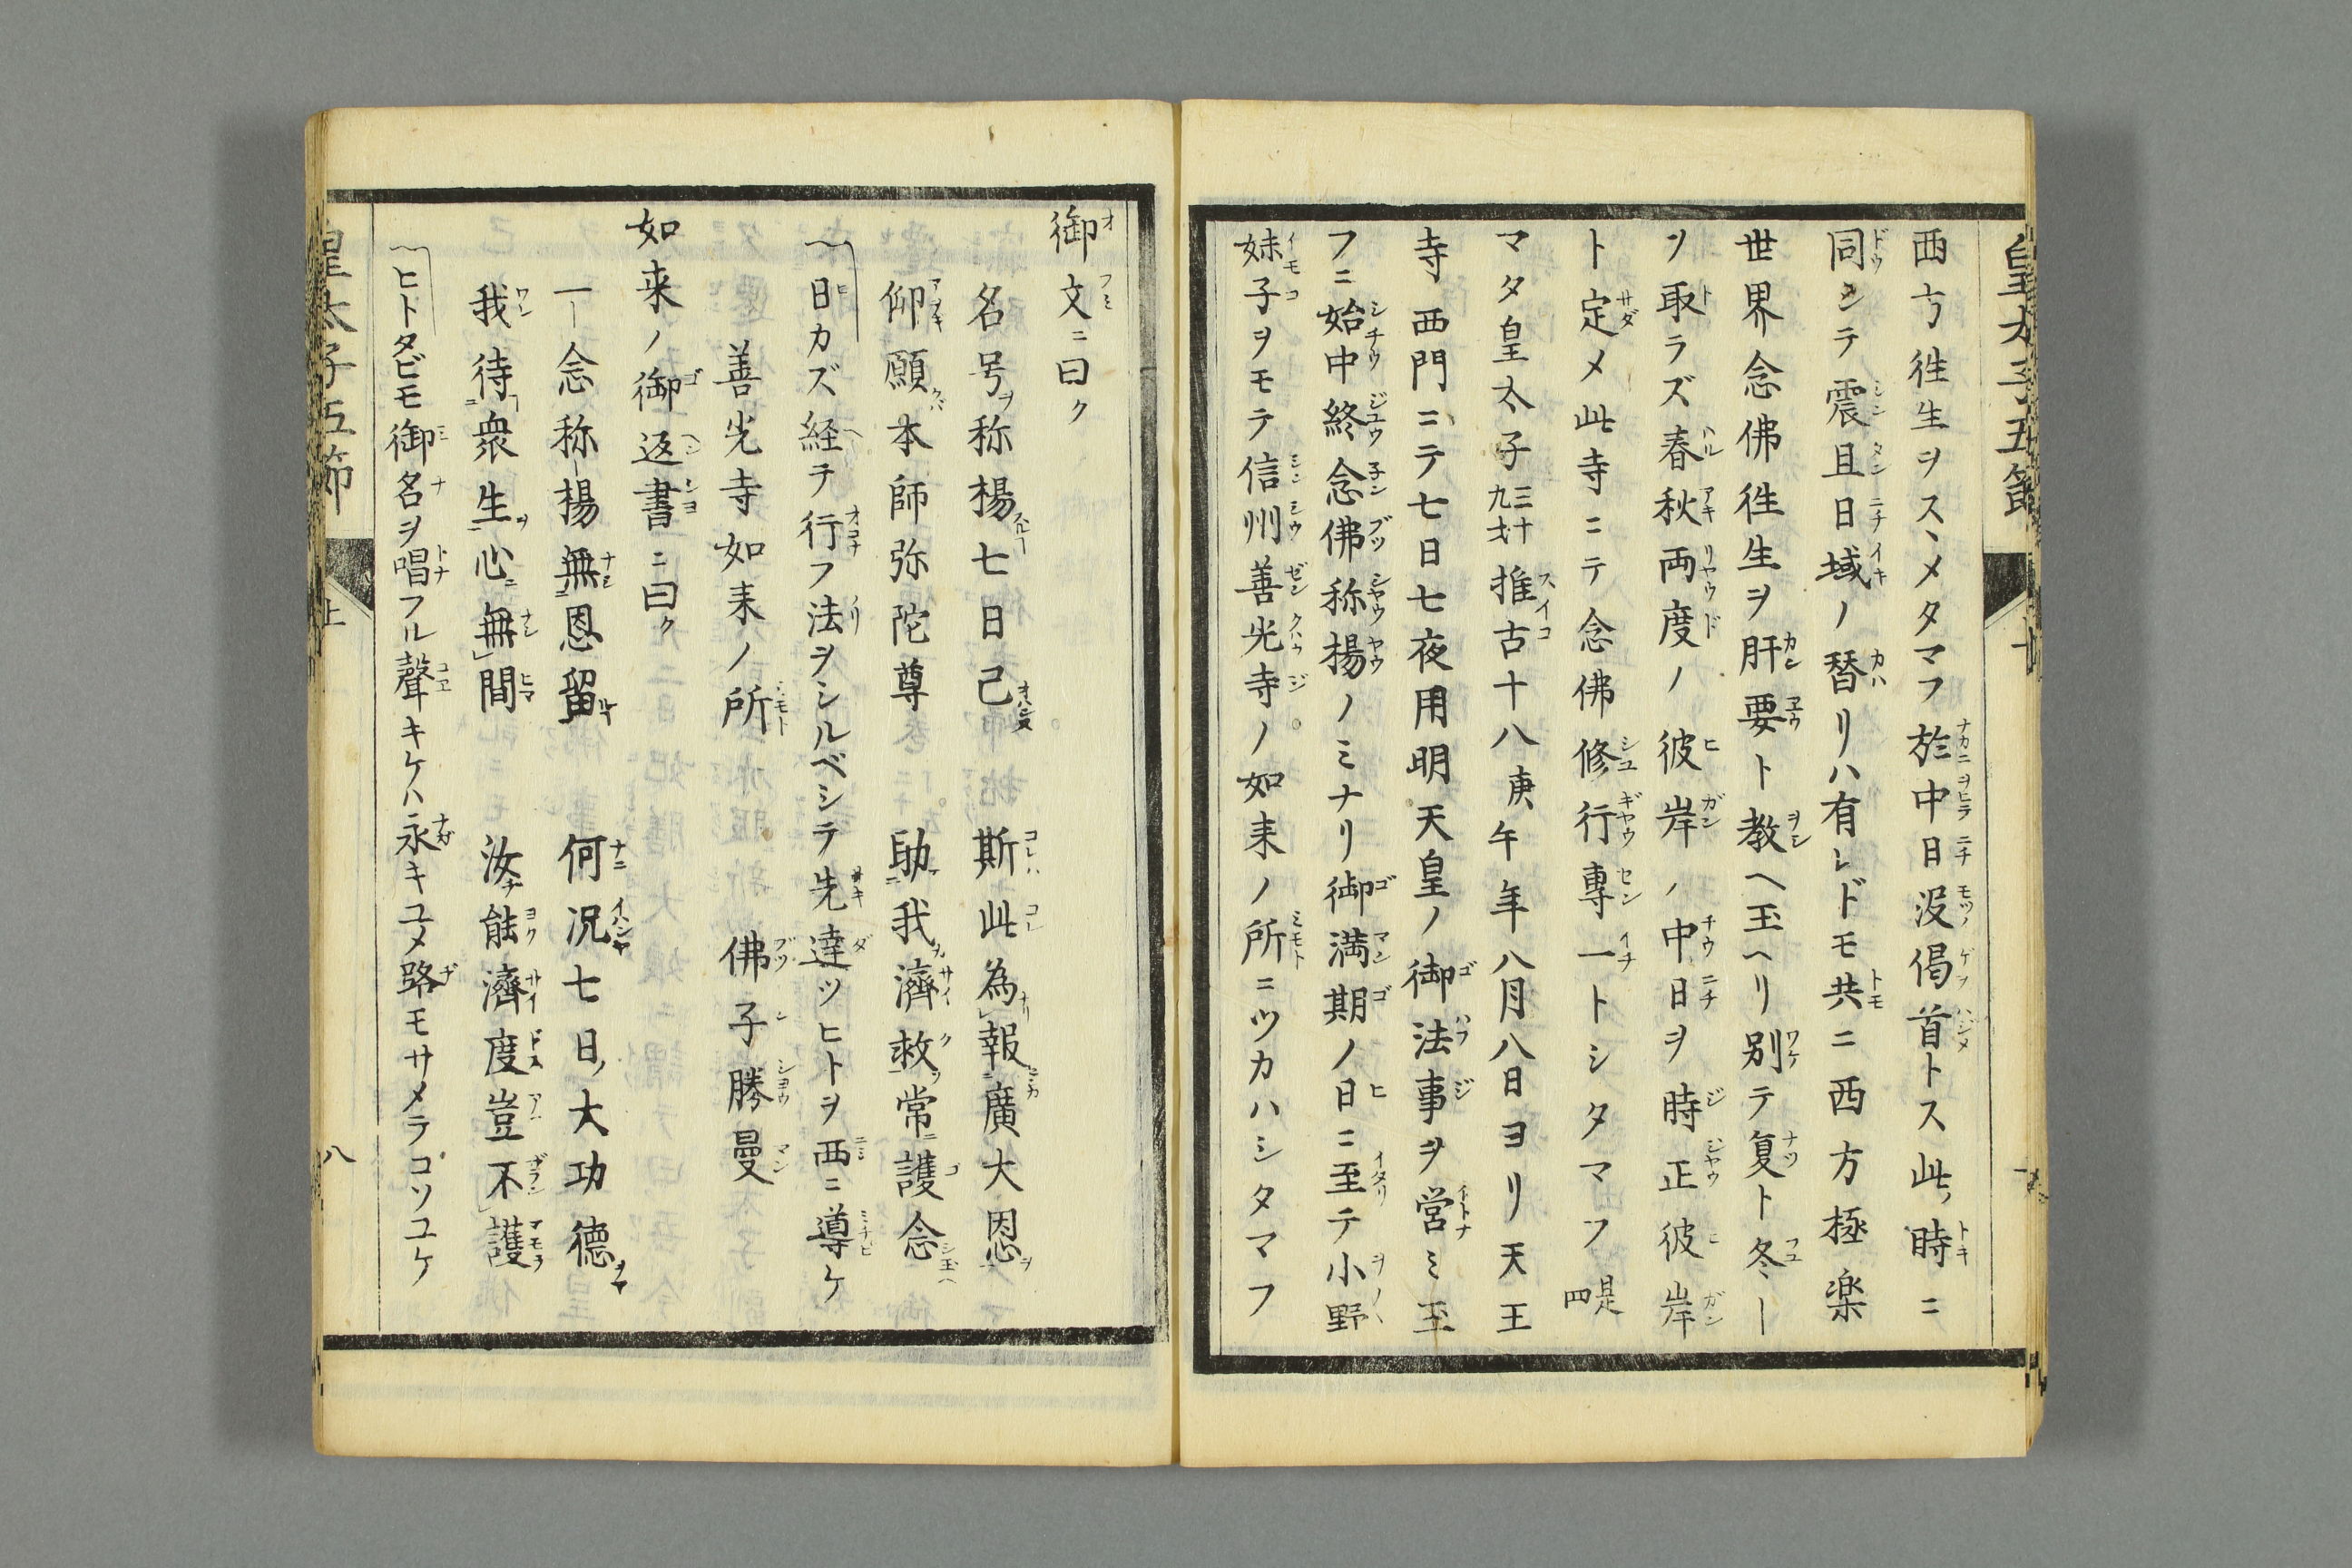 西方徃生ヲスヽメタマフ於中日没偈首トス此ノ時ニ
同シテ震旦日域ノ替リハ有レドモ共ニ西方極楽
世界念佛徃生ヲ肝要ト教ヘ玉ヘリ別テ夏ト冬ー
ヲ取ラズ春秋両度ノ彼岸ノ中日ヲ時正彼岸
ト定メ此寺ニテ念佛修行專一トシタマフ 是四
マタ皇太子三十九才推古十八庚午年八月八日ヨリ天王
寺西門ニテ七日七夜用明天皇ノ御法事ヲ営ミ玉
フニ始中終念佛称揚ノミナリ御満期ノ日ニ至テ小野
妹子ヲモテ信州善光寺ノ如来ノ所ニツカハシタマフ
御文ニ曰ク
名号ヲ称揚七日己 斯此為報廣大恩ヲ
仰願本師弥陀尊 助我濟救常護念
日カズ経テ行フ法ヲシルベシテ先達ツヒトヲ西ニ導ケ
善光寺如来ノ所 佛子勝曼
如来ノ御返書ニ曰ク
一念称揚無恩留 何况七日大功徳
我待衆生心無間 汝能濟度豈不護
ヒトタビモ御名ヲ唱フル聲キケハ永キユメ路モサメラコソユケ
皇太子五節 上 八